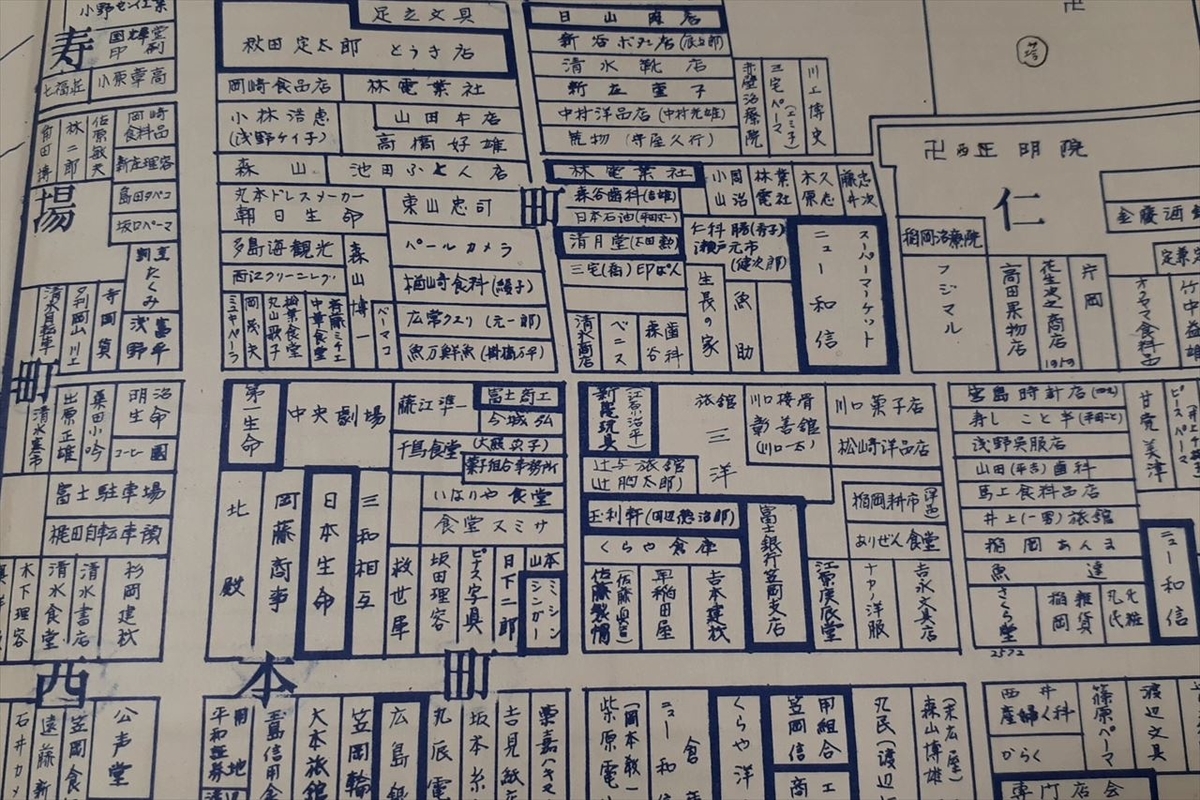 小野センイ工業
国輝堂印刷
寿
七福荘
小原章高
前田博
林二郎
佐原敏夫
岡崎食料品
新庄理容
島田タバコ
坂口パーマ
場
割烹たくみ
浅野
清水自転車
寺岡貨
町
清水喜市
出原正雄
桑田小吟
明治生命
コーヒー園
富士駐車場
梶田自転車預
木下理容
清水食堂
清水書店
杉岡建材
足立文具
秋田定太郎 とうき店
岡崎食品店
林電業社
小林浩忠
(浅野ケイ子)
山田牛店
高橋好雄
森山
池田ふとん店
丸本ドレスメーカー
朝日生命
東山忠司
多島海観光
西江クリーニング
森山博一
パールカメラ
楢崎食料(綾子)
広常クスリ(元一郎)
魚万鮮魚(樹橋万平)
ミユキパーラ
岡茂夫
丸山歌子
柳葉食堂
中華食堂
斉藤ミチエ
パーマコ
日山時店
新谷ボタン店(辰与郎)
清水靴店
新庄童子
中村洋品店(中村光雄)
荒物(守屋久行)
赤壁治療院
三宅パーマ(エミ子)
川上博史
町
林電業社
森谷歯科(吉雄)
日本石油(平田)
清月堂(太田勲)
三宅(梅)印ばん
小山
岡治
林電
業社
木原
久志
藤井
忠次
仁科勝(寿子)
瀬戸元市
(健次郎)
スーパーマーケット
ニュー和信
清水商店
ベニス
森谷歯科
生長の家
魚助
塔
卍西正明院
仁
稲岡治療院
フジマル
高田果物店
花生史之商店
片岡
オカヤマ食料品
金慶酒
定兼
竹中益雄
第一生命
中央劇場
藤江準一
富士商工
今城弘
千鳥食堂
(大熊英子)
菓子組合事務所
北殿
岡藤商事
日本生命
三和相互
いなりや食堂
食堂スミサ
救世軍
坂田理容
ビーナス写真
日下二郎
山本
ミシンシンガー
新陸玩具
(江原治平)
旅館三洋
川口接骨
彰善館
(川口一太)
川口菓子店
松崎洋品店
辻与旅館
辻胸太郎
玉利軒(田辺徳治郎)
くらや倉庫
佐藤製綿
(佐藤奥吉)
早稲田屋
吉本建材
富士銀行笠岡支店
稲岡耕市
ありぜん食堂
江原漢辰堂
ナカノ洋服
吉永文具店
宮島時計店
寿し こと半
浅野呉服店
山田(平吉)歯科
馬上食料品店
井上(一男)旅館
稲岡あんま
魚達
さくら堂
稲岡
雑貨
丸氏
化粧
ピースパーマ
甘党美津
ニュー和信
2572
西本町
石井カメ
遠藤新
笠岡食
公声堂
平和証券
用地
玉島信用金
大本旅館
笠岡輪
広島銀
丸辰電
坂本糸
吉見紙店
栗嘉ハキモ
柴原電
(岡本戦一
ニュー和
倉
くらや洋
笠岡信
甲組合
商工
丸民(渡辺
森山博雄
(末広屋)
西井産婦人科
からく
篠原パーマ
渡辺文具
専門店会